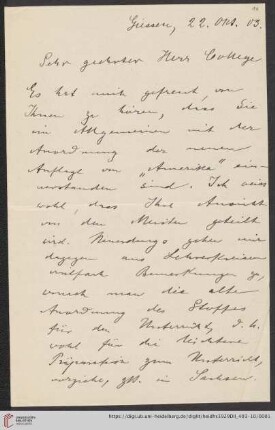 Giessen, 22. Okt. 03.
Sehr geehrter Herr College
Es hat mich gefreut, von
Ihnen zu hören, dass Sie
im Allgemeinen mit der
Anordnung der neuen
Auflage von „Amerika" ein-
verstanden sind. Ich weiss
wohl, dass Ihre Ansicht
von den Meisten geteilt
wird. Neuerdings gehen mir
dagegen aus Lehrerkreisen
mehrfach Bemerkungen zu,
wonach man die alte
Anordnung des Stoffes
für den Unterricht, d. h.
wohl für die leichtere
Präparation zum Unterricht,
vorziehe, zB. in Sachsen.
https://digi.ub.uni-heidelberg.de/diglit/heidhs3929DII_403-18/0001